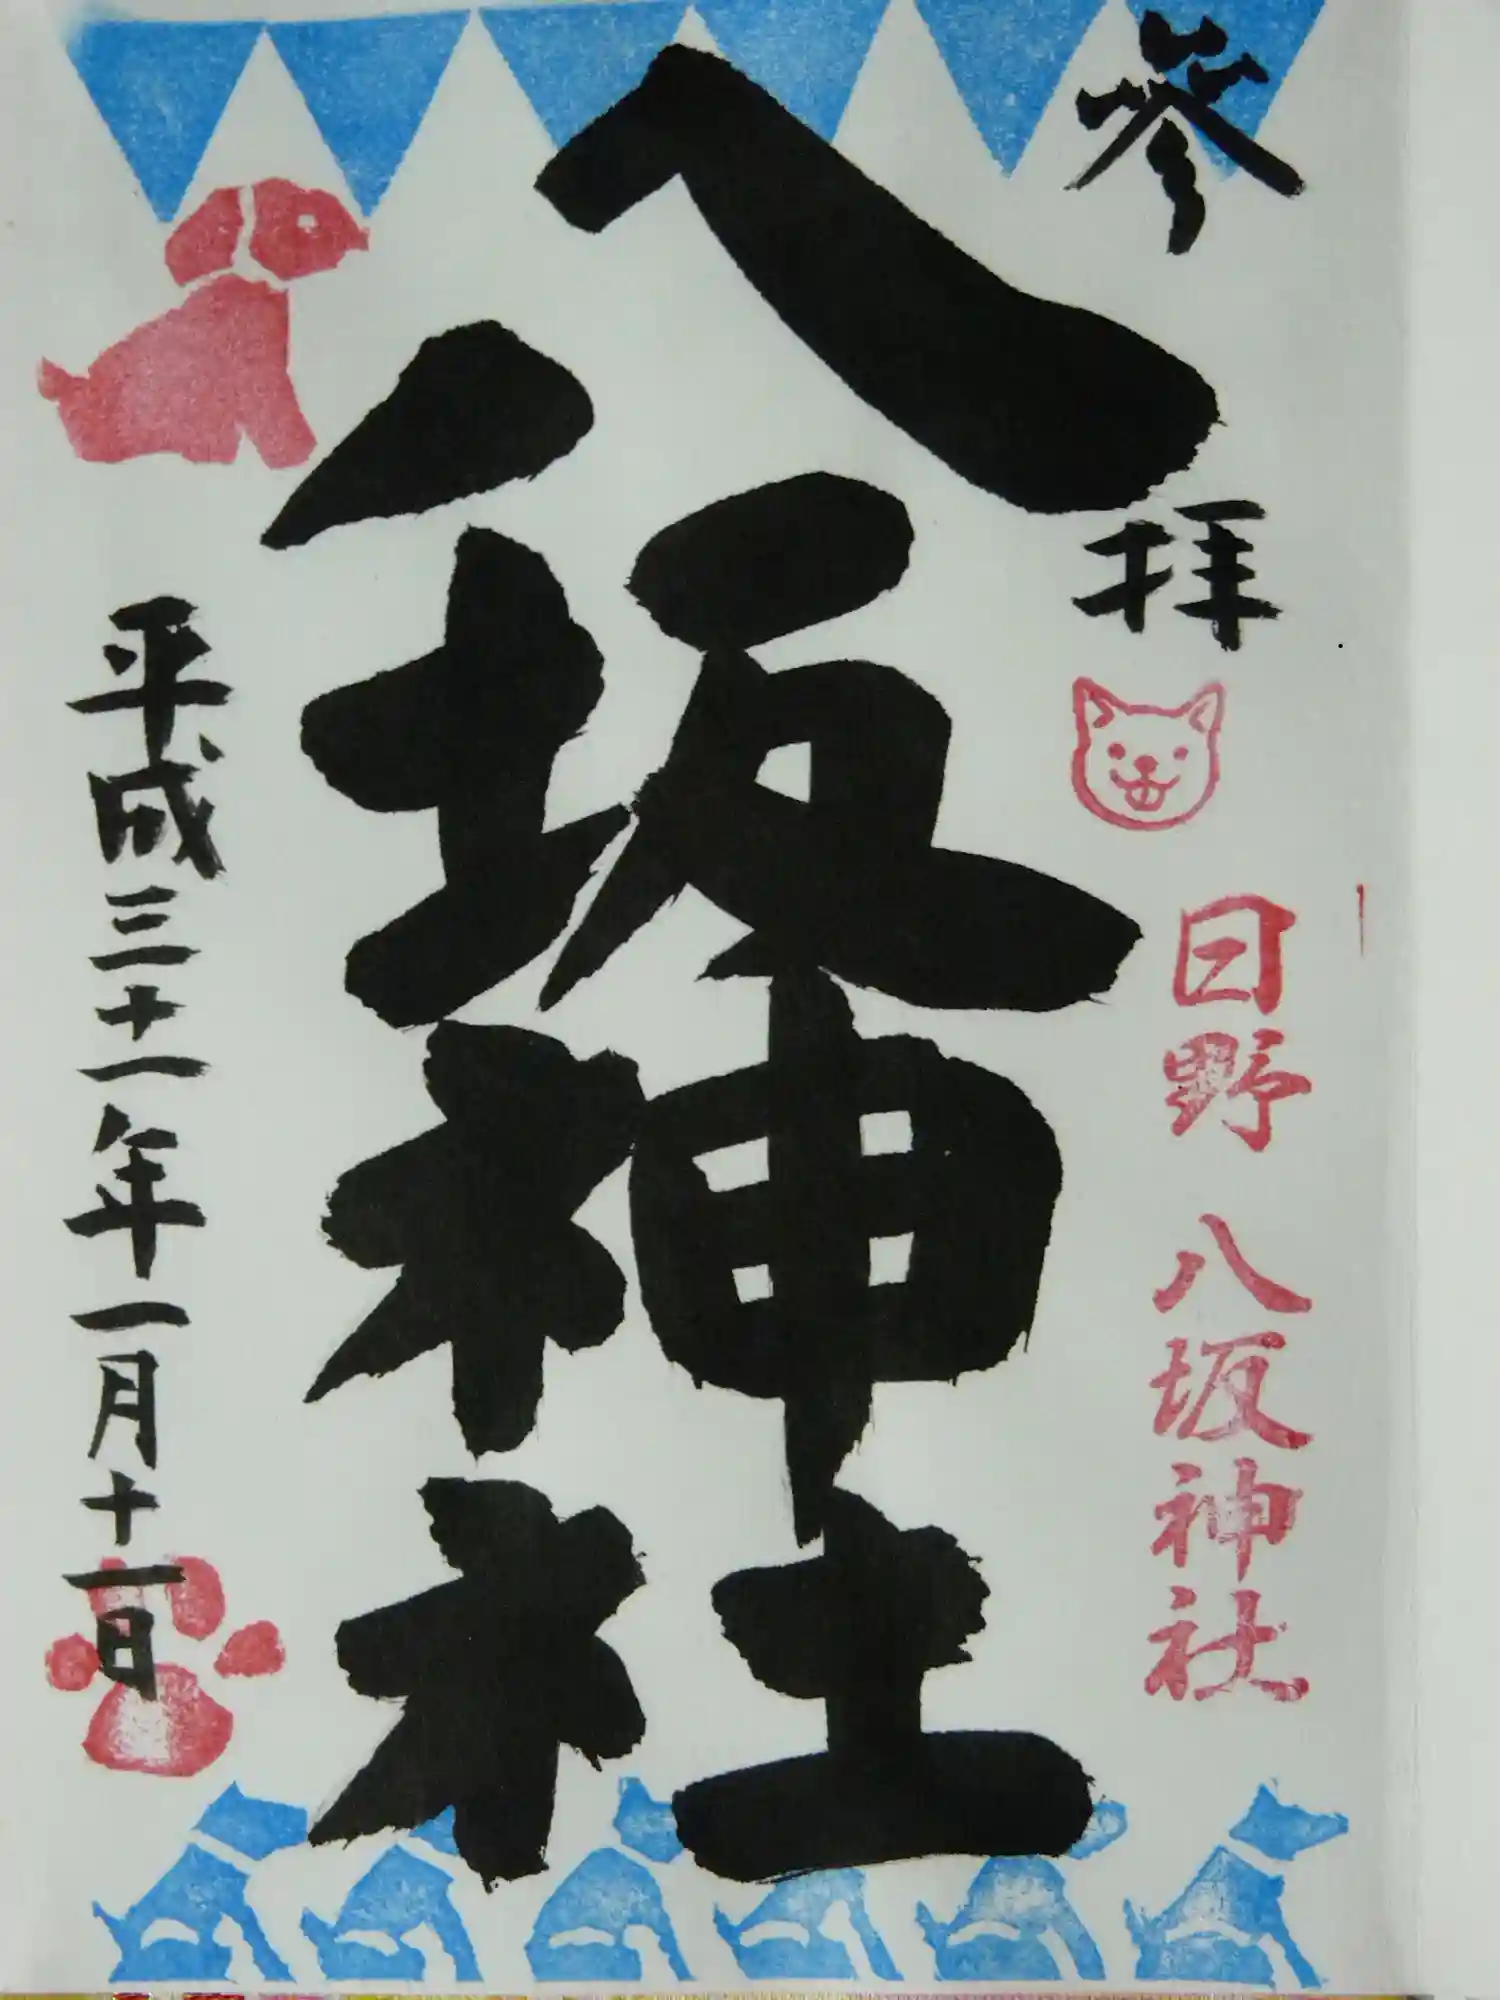 参拝
日野 八坂神社
八坂神社
平成三十一年一月十一日